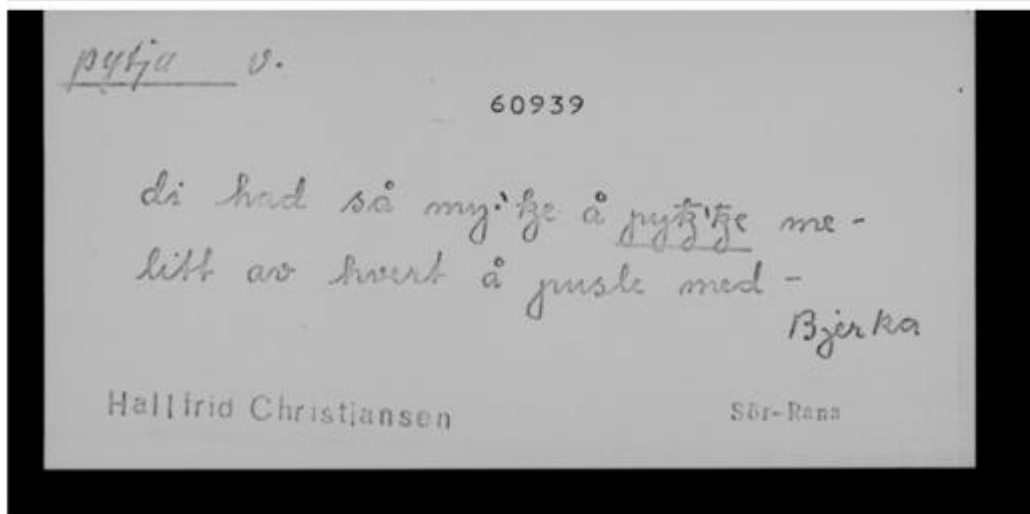 pytja v.
60939
di had så my·'ꞣe å pyꞣ'ꞣe me -
litt av hvert å pusle med -
Bjerka
Hallfrid Christiansen Sör-Rana